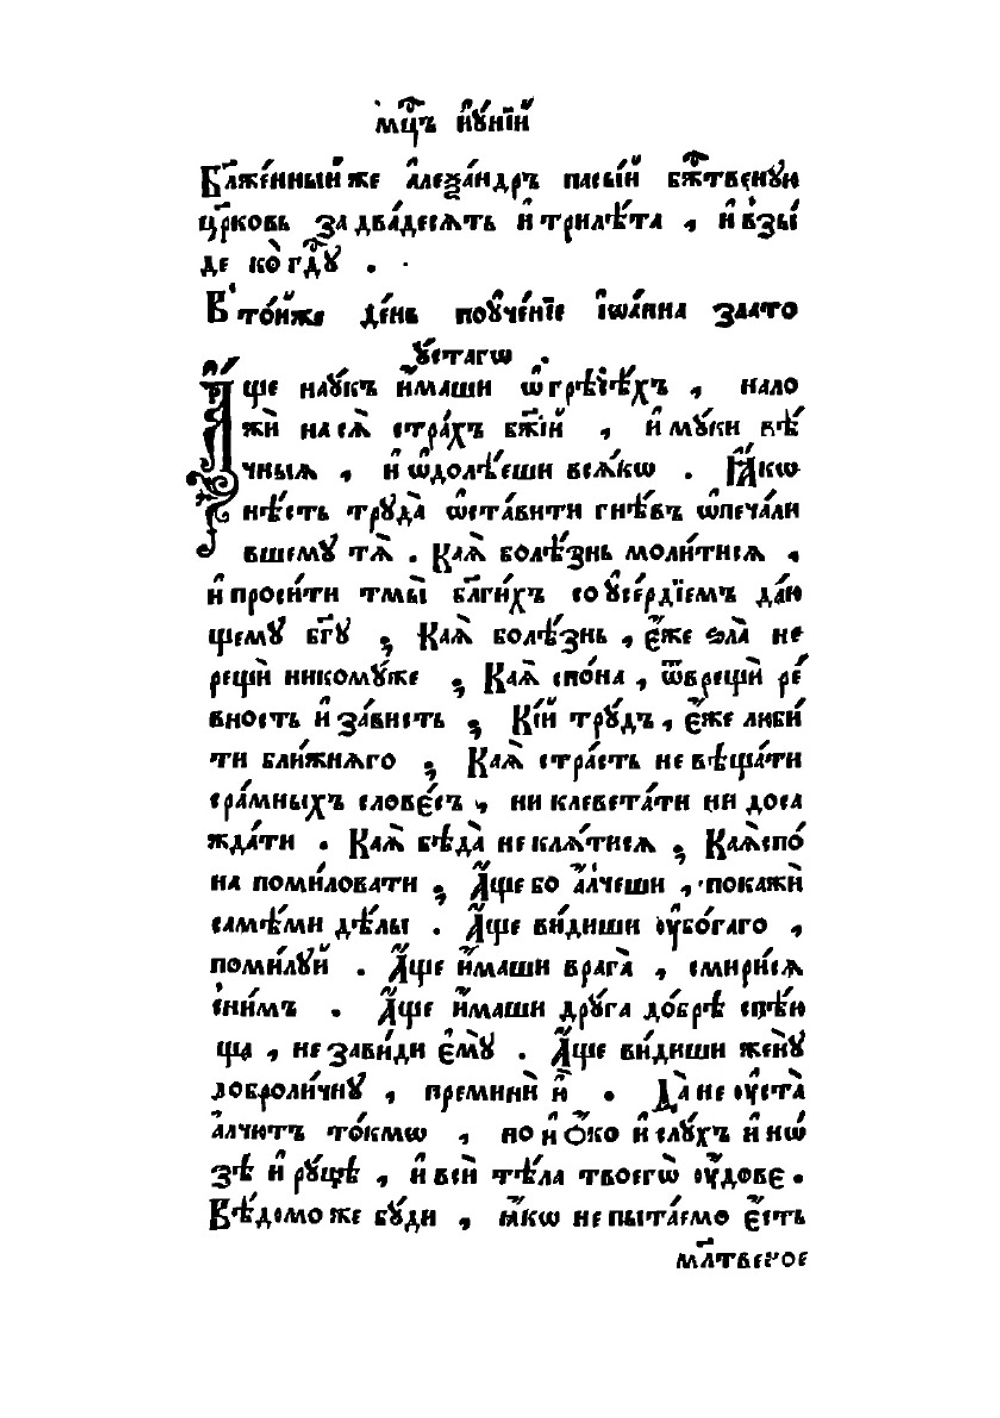 мцⷭ҇ъ і҆ꙋ́нїй
Бл҃же́нный же а҆леѯа́ндръ пасы́й бжⷭ҇твенꙋю
цр҃ковь за два́десѧть и҆ три лѣ́та , и҆ взы́
де ко̀ гдⷭ҇ꙋ .
В то́йже де́нь поꙋче́нїе і҆ѡа́нна злато
ꙋ́стагѡ .
А҆́ще наꙋкъ и҆́маши ѡ҆ грѣсѣ́хъ , нало
жѝ на сѧ̀ стра́хъ бж҃їй , и҆ мꙋ́ки вѣ́
чныѧ , и҆ ѡ҆долѣ́еши всѧ́кѡ . Ꙗ҆́кѡ
нѣ́сть трꙋда̀ ѡ҆ста́вити гнѣ́въ ѡ҆печа́ли
вшемꙋ тѧ̀ . Каѧ̀ болѣ́знь моли́тисѧ ,
и҆ проси́ти тмы̀ бл҃ги́хъ со ꙋ҆се́рдїемъ даю́
щемꙋ бг҃ꙋ ; Каѧ̀ болѣ́знь , є҆́же ѕла̀ не
рещѝ никомꙋ́же ; Каѧ̀ спо́на , ѿврещѝ ре́
вность и҆ за́висть ; Кі́й трꙋ́дъ , є҆́же люби́
ти бли́жнѧго ; Каѧ̀ стра́сть не вѣща́ти
сра́мныхъ слове́съ , ни клевета́ти ни доса
жда́ти . Каѧ̀ бѣда̀ не клѧ́тисѧ ; Каѧ̀ спо́
на поми́ловати ; А҆́ще бо а҆́лчеши , покажѝ
самѣ́ми дѣ́лы . А҆́ще ви́диши ᲂу҆бо́гаго ,
поми́лꙋй . А҆́ще и҆́маши врага̀ , смири́сѧ
сни́мъ . А҆́ще и҆́маши дрꙋ́га до́брѣ спѣ́ю
ща , не зави́ди є҆мꙋ̀ . А҆́ще ви́диши женꙋ̀
доброли́чнꙋ , преминѝ и҆̀ . Да̀ не ᲂу҆ста̀
а҆́лчютъ то́кмѡ , но и҆ ѻ҆́ко и҆ слꙋ́хъ и҆ нѡ́
зѣ и҆ рꙋ́цѣ , и҆ всѝ тѣ́ла твоегѡ̀ ᲂу҆́дове .
Вѣ́домо же бꙋ́ди , ꙗ҆́кѡ не пыта́емо є҆́сть
мл҃твеное